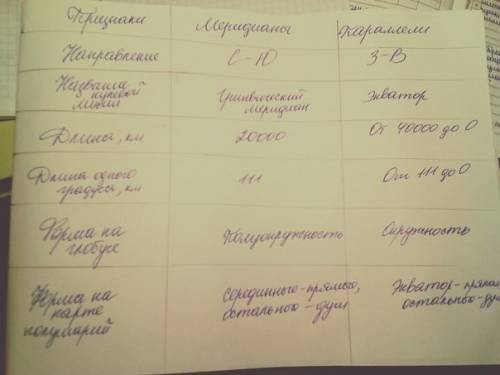 Признаки Меридианы Параллели
Направление С-Ю З-В
Название нулевой линии Гринвический меридиан Экватор
Длина, км 20000 От 40000 до 0
Длина одного градуса, км 111 От 111 до 0
Форма на глобусе Полуокружность Окружность
Форма на карте полушарий Серединные-прямые, остальные-дуги Экватор-прямая, остальные-дуги